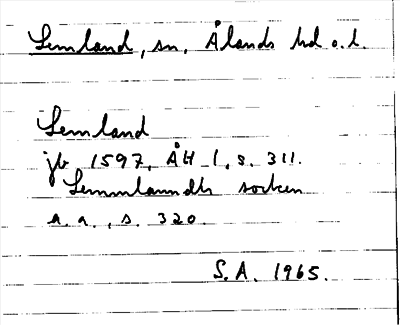 Lemland, sn, Ålands hd o.l.
Lemland
jb 1597, ÅH 1, s. 311.
Lemmlanndtz socken
a.a., s. 320.
S.A. 1965.